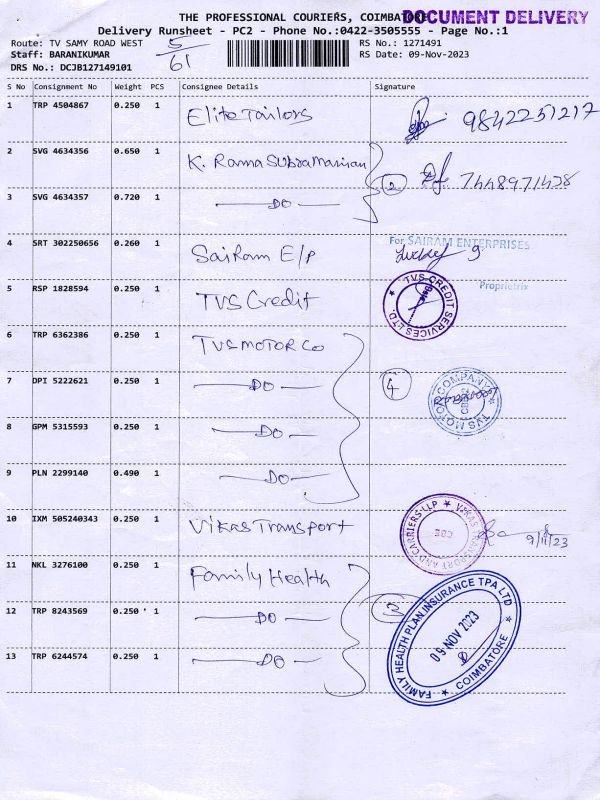 THE PROFESSIONAL COURIERS, COIMBATORE
DOCUMENT DELIVERY
Delivery Runsheet - PC2 - Phone No.:0422-3505555 - Page No.:1
Route: TV SAMY ROAD WEST
5/61
RS No.: 1271491
Staff: BARANIKUMAR
RS Date: 09-Nov-2023
DRS No.: DCJB127149101
S No Consignment No Weight PCS Consignee Details Signature
1 TRP 4504867 0.250 1 Elite Tailors 9842251217
2 SVG 4634356 0.650 1 K. Rama Subramanian 2 7448971438
3 SVG 4634357 0.720 1 — DO —
4 SRT 302250656 0.260 1 SaiRam E/P
For SAIRAM ENTERPRISES
9
Proprietrix
5 RSP 1828594 0.250 1 TVS Credit
TVS CREDIT SERVICES LTD.
6 TRP 6362386 0.250 1 TVS MOTOR Co
7 DPI 5222621 0.250 1 — DO — 4
TVS MOTOR COMPANY
8 GPM 5315593 0.250 1 — DO —
9 PLN 2299140 0.490 1 — DO —
10 IXM 505240343 0.250 1 Vikas Transport
VIKAS TRANSPORT AND CARRIERS LLP
9/11/23
11 NKL 3276100 0.250 1 Family Health
12 TRP 8243569 0.250 ' 1 — DO — 3
FAMILY HEALTH PLAN INSURANCE TPA LTD
09 NOV 2023
COIMBATORE
13 TRP 6244574 0.250 1 — DO —